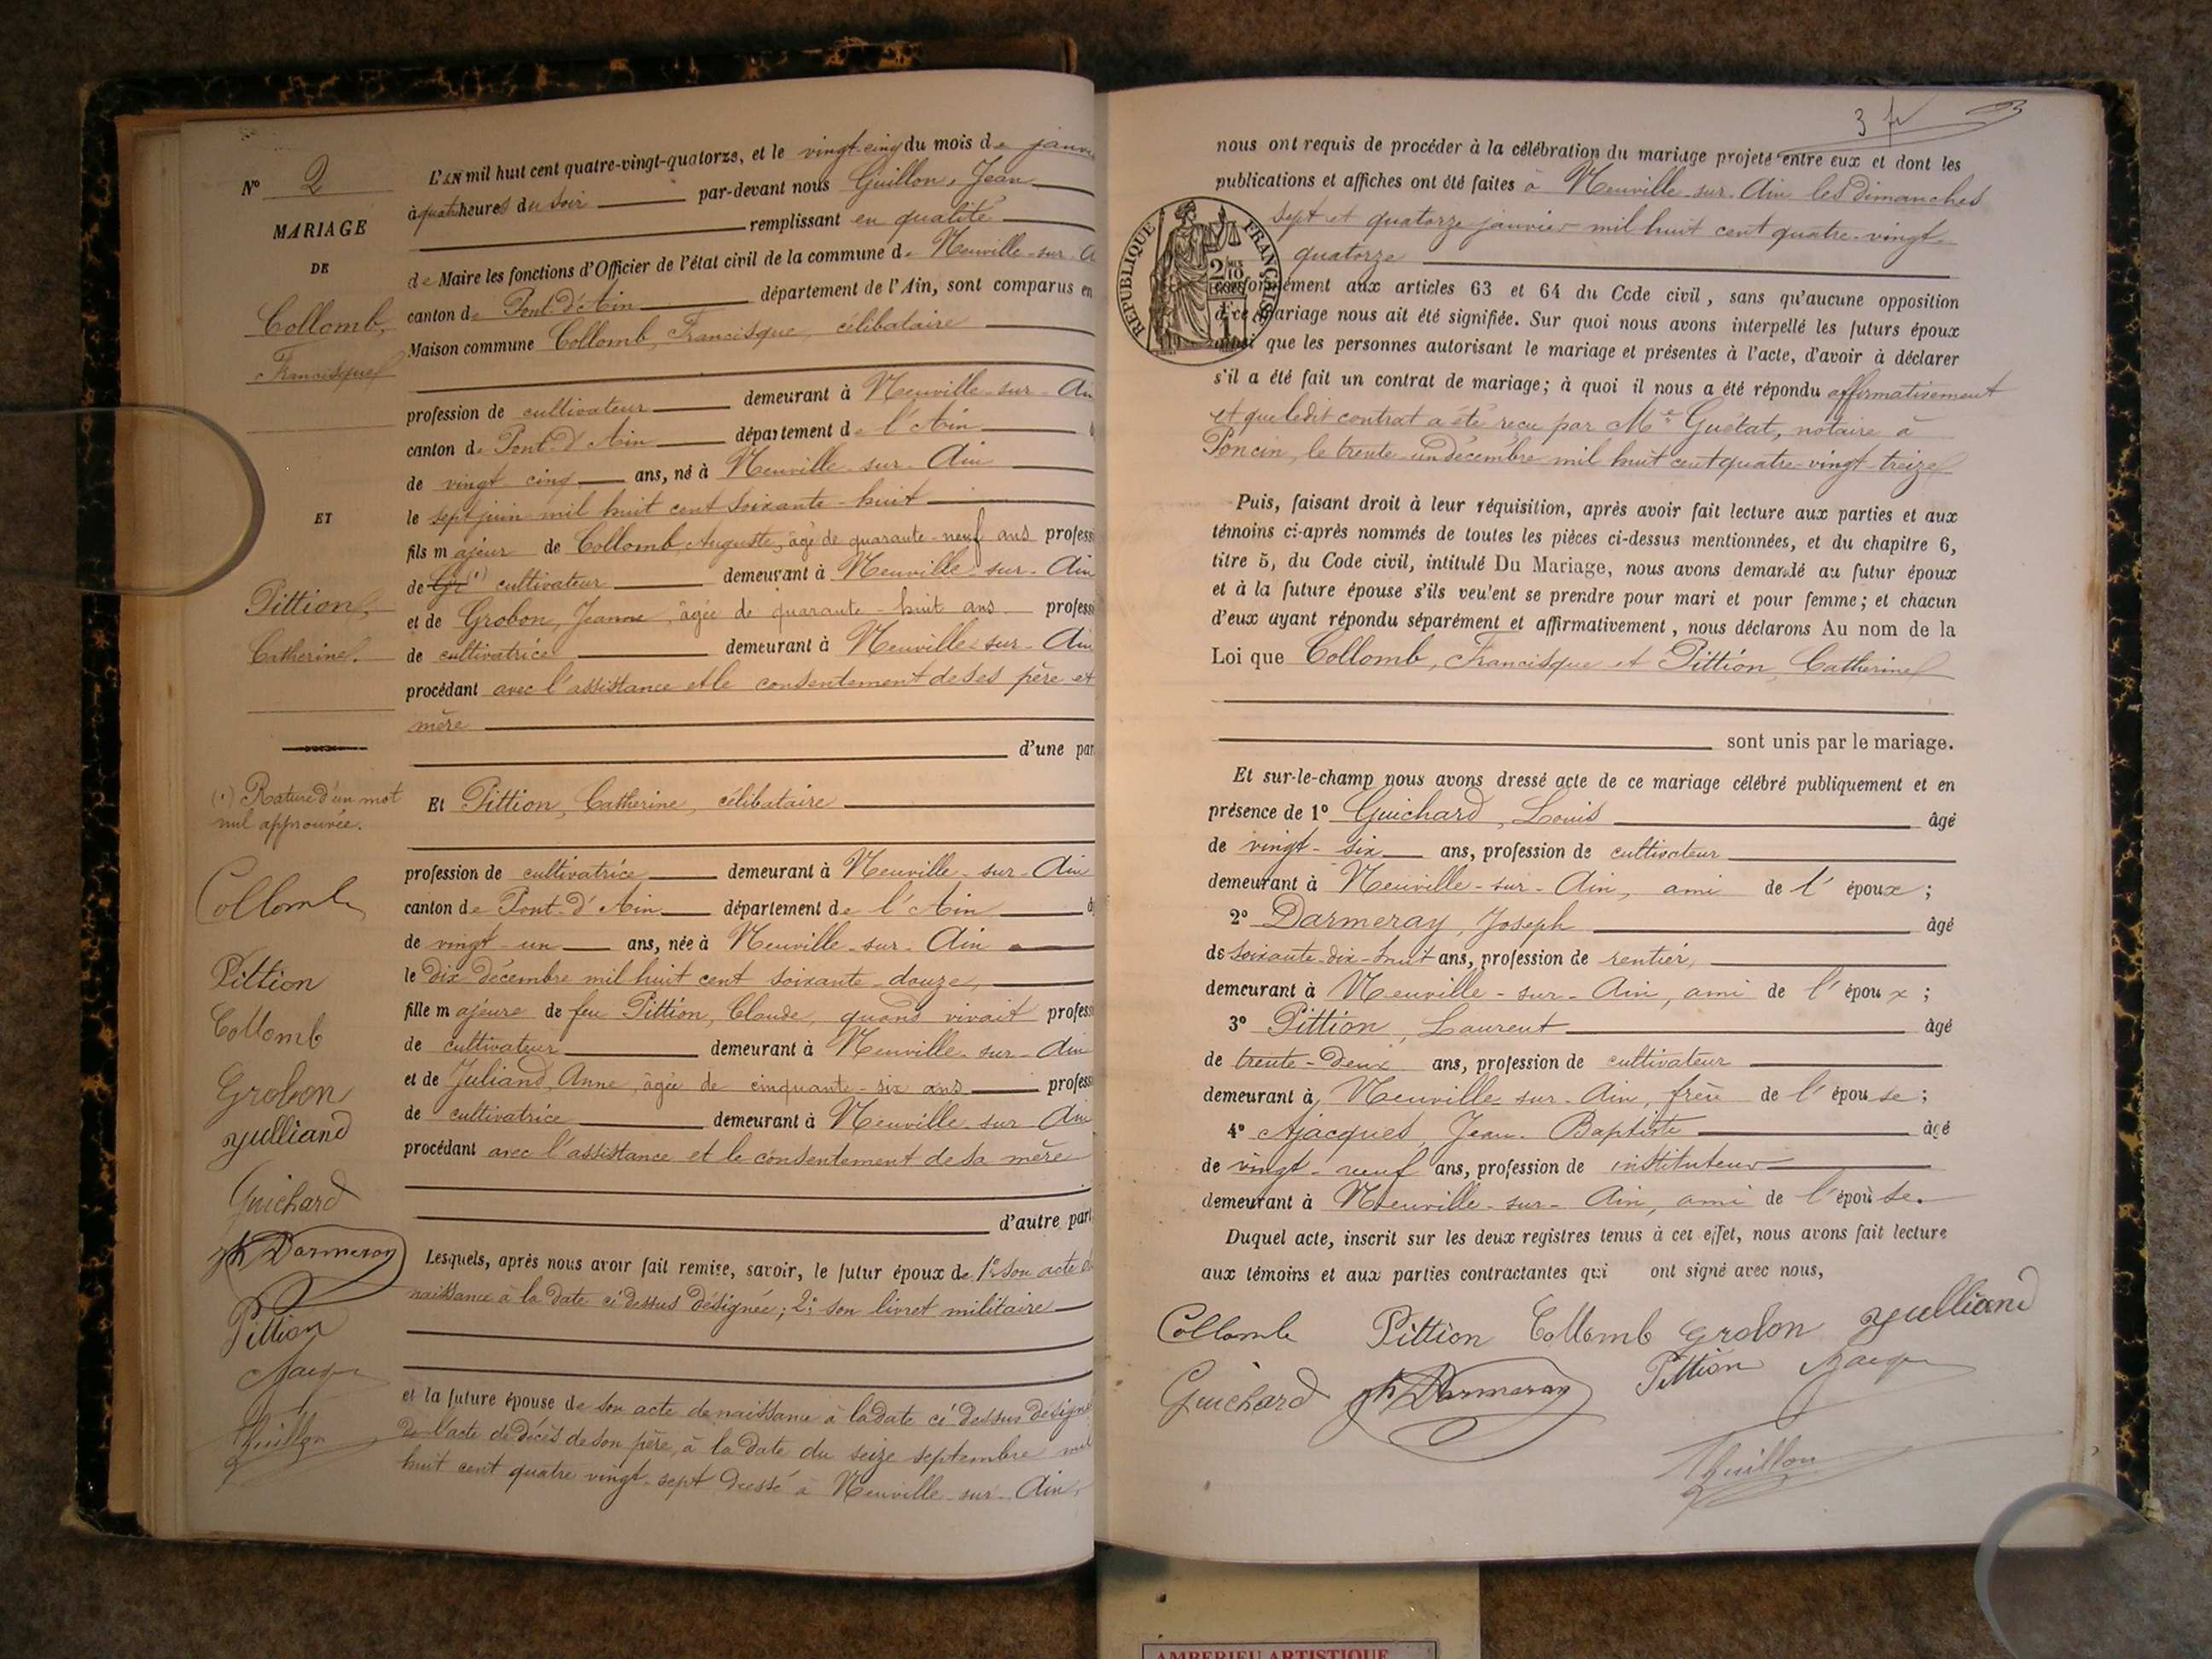 N° 2
MARIAGE
DE
Collomb,
Francisque
ET
Pittion,
Catherine.
(1) Rature d'un mot
nul approuvée.
Collomb
Pittion
Collomb
Grobon
Yulliand
Guichard
Jh Darmeray
Pittion
Guillon
L'AN mil huit cent quatre-vingt-quatorze, et le vingt-cinq du mois de janv
à quatre heures du soir par-devant nous Guillon, Jean
remplissant en qualité
de Maire les fonctions d'Officier de l'état civil de la commune de Neuville-sur-A
canton de Pont-d'Ain département de l'Ain, sont comparus en
Maison commune Collomb, Francisque, célibataire
profession de cultivateur demeurant à Neuville-sur-Ain
canton de Pont-d'Ain département de l'Ain
de vingt-cinq ans, né à Neuville-sur-Ain
le sept juin mil huit cent soixante-huit
fils majeur de Collomb, Auguste, âgé de quarante-neuf ans profess
de (1) cultivateur demeurant à Neuville-sur-Ain
et de Grobon, Jeanne, âgée de quarante-huit ans profess
de cultivatrice demeurant à Neuville-sur-Ain
procédant avec l'assistance et le consentement de ses père et
mère
d'une par
Et Pittion, Catherine, célibataire
profession de cultivatrice demeurant à Neuville-sur-Ain
canton de Pont-d'Ain département de l'Ain
de vingt-un ans, née à Neuville-sur-Ain
le dix décembre mil huit cent soixante-douze,
fille majeure de feu Pittion, Claude, quand vivait profess
de cultivateur demeurant à Neuville-sur-Ain
et de Juliand, Anne, âgée de cinquante-six ans profess
de cultivatrice demeurant à Neuville-sur-Ain
procédant avec l'assistance et le consentement de sa mère
d'autre part
Lesquels, après nous avoir fait remise, savoir, le futur époux de 1° son acte de
naissance à la date ci-dessus désignée; 2° son livret militaire
et la future épouse de son acte de naissance à la date ci-dessus désigné
de l'acte de décès de son père, à la date du seize septembre mil
huit cent quatre-vingt-sept dressé à Neuville-sur-Ain,
3 fr
nous ont requis de procéder à la célébration du mariage projeté entre eux et dont les
publications et affiches ont été faites à Neuville-sur-Ain les dimanches
sept et quatorze janvier mil huit cent quatre-vingt-
quatorze
REPUBLIQUE FRANÇAISE
2/10
conformément aux articles 63 et 64 du Code civil, sans qu'aucune opposition
à ce mariage nous ait été signifiée. Sur quoi nous avons interpellé les futurs époux
ainsi que les personnes autorisant le mariage et présentes à l'acte, d'avoir à déclarer
s'il a été fait un contrat de mariage; à quoi il nous a été répondu affirmativement
et que ledit contrat a été reçu par Me Guétat, notaire à
Poncin, le trente-un décembre mil huit cent quatre-vingt-treize
Puis, faisant droit à leur réquisition, après avoir fait lecture aux parties et aux
témoins ci-après nommés de toutes les pièces ci-dessus mentionnées, et du chapitre 6,
titre 5, du Code civil, intitulé Du Mariage, nous avons demandé au futur époux
et à la future épouse s'ils veulent se prendre pour mari et pour femme; et chacun
d'eux ayant répondu séparément et affirmativement, nous déclarons Au nom de la
Loi que Collomb, Francisque et Pittion, Catherine
sont unis par le mariage.
Et sur-le-champ nous avons dressé acte de ce mariage célébré publiquement et en
présence de 1° Guichard, Louis âgé
de vingt-six ans, profession de cultivateur
demeurant à Neuville-sur-Ain, ami de l'époux;
2° Darmeray, Joseph âgé
de soixante-dix-huit ans, profession de rentier,
demeurant à Neuville-sur-Ain, ami de l'époux;
3° Pittion, Laurent âgé
de trente-deux ans, profession de cultivateur
demeurant à Neuville-sur-Ain, frère de l'épouse;
4° Ajacques, Jean-Baptiste âgé
de vingt-neuf ans, profession de instituteur
demeurant à Neuville-sur-Ain, ami de l'épouse.
Duquel acte, inscrit sur les deux registres tenus à cet effet, nous avons fait lecture
aux témoins et aux parties contractantes qui ont signé avec nous,
Collomb Pittion Collomb Grobon Yulliand
Guichard Jh Darmeray Pittion
Guillon
AMBERIEU ARTISTIQUE